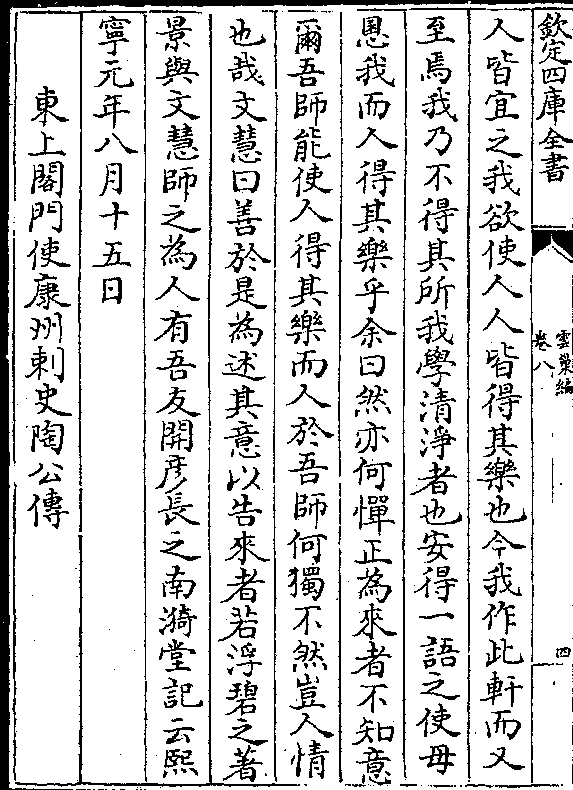 欽定四庫全書
雲巢編
卷八
四
人皆宜之我欲使人人皆得其樂也今我作此軒而又
至焉我乃不得其所我學清淨者也安得一語之使毋
慁我而人得其樂乎余曰然亦何憚正為來者不知意
爾吾師能使人得其樂而人於吾師何獨不然豈人情
也哉文慧曰善於是為述其意以告來者若浮碧之著
景與文慧師之為人有吾友開彥長之南漪堂記云熙
寧元年八月十五日
東上閣門使康州刺史陶公傳